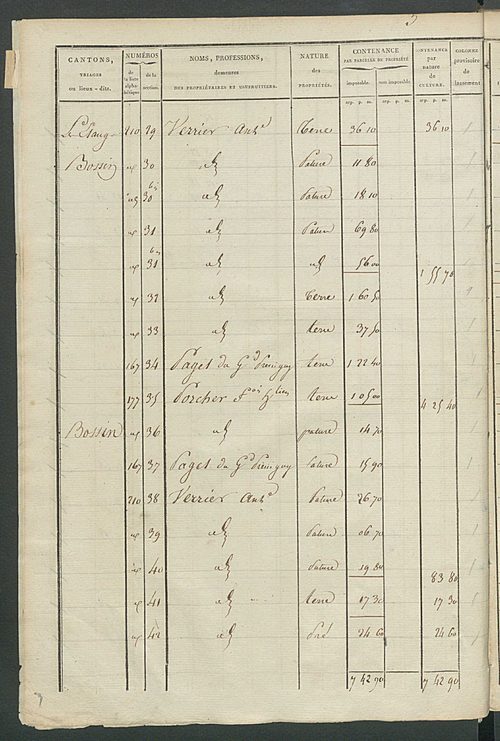 3
CANTONS, TRIAGES ou lieux-dits. NUMÉROS de la liste alphabétique de la section. NOMS, PROFESSIONS, demeures DES PROPRIÉTAIRES ET USUFRUITIERS. NATURE des PROPRIÉTÉS. CONTENANCE PAR PARCELLE DE PROPRIÉTÉ imposable. non imposable. CONTENANCE par nature de CULTURE. provisoire de classement
arp. p. m. arp. p. m. arp. p. m.
210 29 Verrier Ant.e Terre 36 10 36 10
Bossin id 30 id Pature 11 80
id 30 bis id Pature 18 10
id 31 id Pature 69 80
id 31 bis id id 56 00
1 55 70
id 32 id Terre 1 60 50
id 33 id terre 37 50
167 34 Paget du G.d terre 1 22 40
177 35 Porcher F.ois terre 1 05 00
4 25 40
Bossin id 36 id pature 14 70
167 37 Paget du G.d Pature 15 90
210 38 Verrier Ant.e Pature 26 70
id 39 id Pature 06 70
id 40 id Pature 19 80
83 80
id 41 id terre 17 30 17 30
id 42 id Pré 24 60 24 60
7 42 90 7 42 90